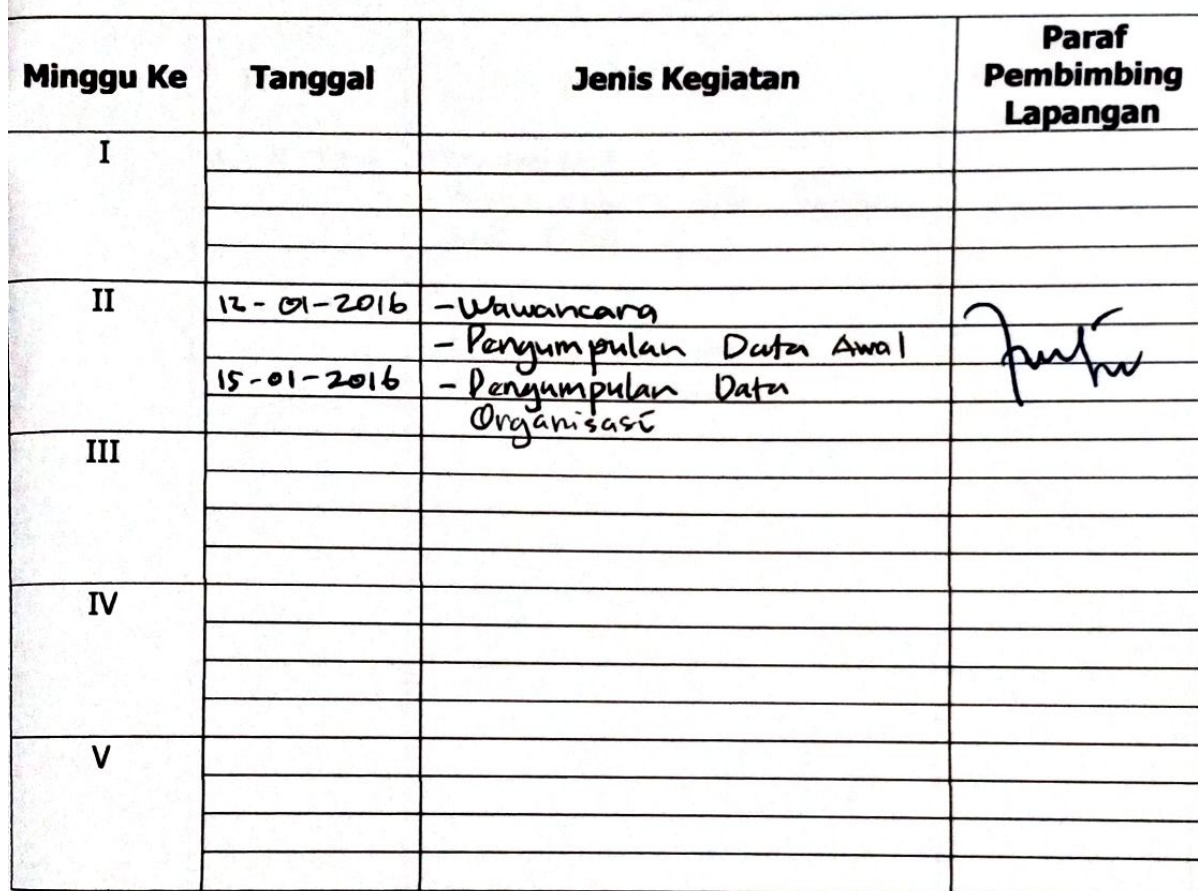 Minggu Ke Tanggal Jenis Kegiatan Paraf
Pembimbing
Lapangan
I
II 12-01-2016 -Wawancara
- Pengumpulan Data Awal
15-01-2016 - Pengumpulan Data
Organisasi
III
IV
V